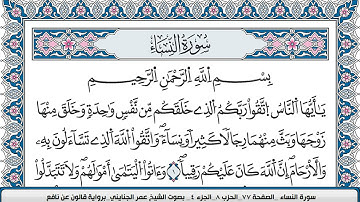 سُورَةُ النِّسَاءِ
بِسْمِ اِللَّهِ اِلرَّحْمَٰنِ اِلرَّحِيمِ
يَٰأَيُّهَا اَلنَّاسُ اُ۪تَّقُواْ رَبَّكُمُ اُلذِے خَلَقَكُم مِّن نَّفْسٖ وَٰحِدَةٖ وَخَلَقَ مِنْهَا
زَوْجَهَا وَبَثَّ مِنْهُمَا رِجَالاٗ كَثِيراٗ وَنِسَآءٗۖ وَاتَّقُواْ اُللَّهَ اَلذِے تَسَّآءَلُونَ بِهِۦ
وَالَارْحَامَۖ إِنَّ اَللَّهَ كَانَ عَلَيْكُمْ رَقِيباٗۖ ١ وَءَاتُواْ اُلْيَتَٰمَىٰٓ أَمْوَٰلَهُمْۖ وَلَا تَتَبَدَّلُواْ
سورة النساء _ الصفحة ٧٧ _ الحزب ٨ _ الجزء ٤ _ بصوت الشيخ عمر الجنايني _ برواية قالون عن نافع